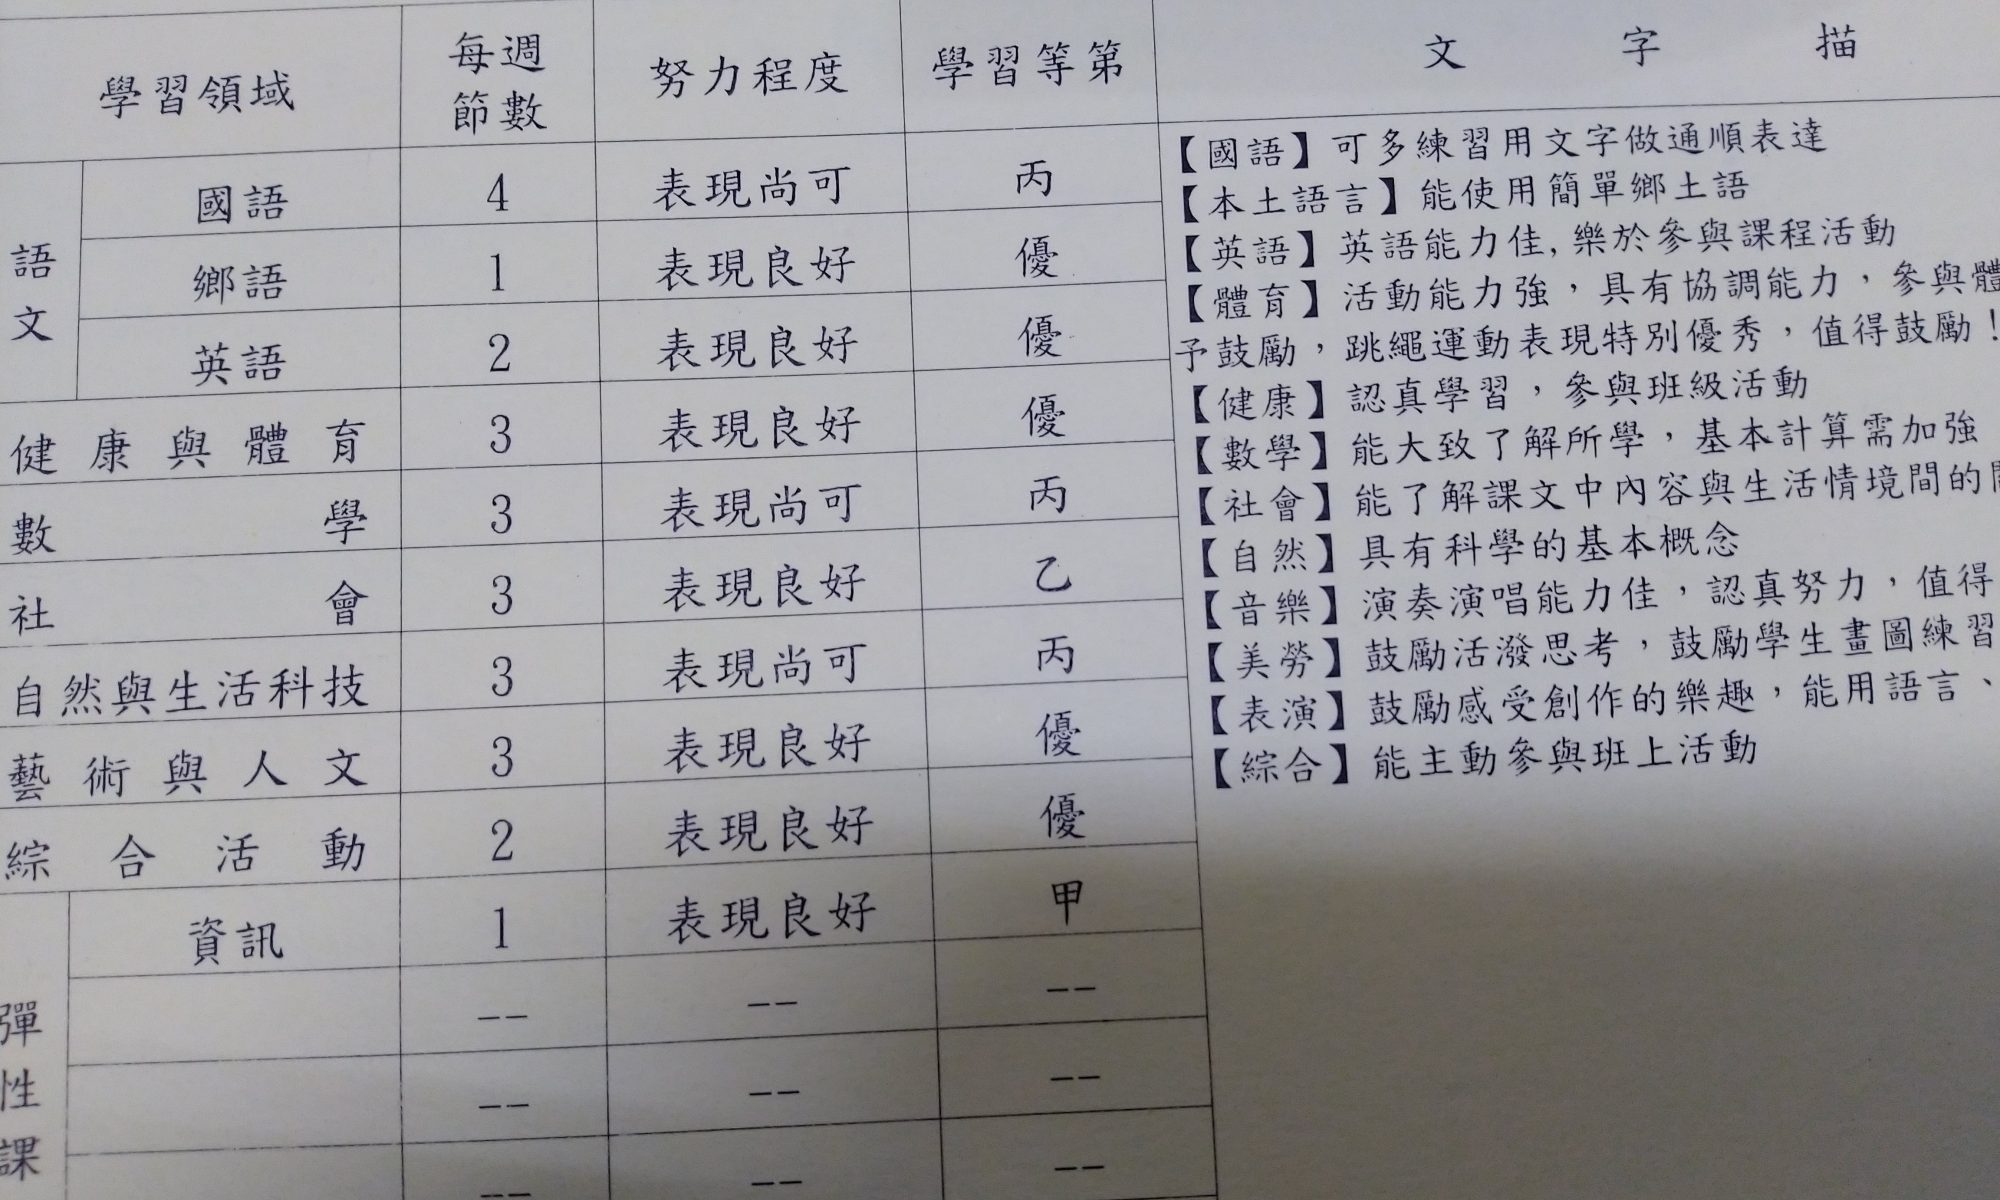 學習領域 每週節數 努力程度 學習等第 文字描
語文 國語 4 表現尚可 丙
鄉語 1 表現良好 優
英語 2 表現良好 優
健康與體育 3 表現良好 優
數學 3 表現尚可 丙
社會 3 表現良好 乙
自然與生活科技 3 表現尚可 丙
藝術與人文 3 表現良好 優
綜合活動 2 表現良好 優
彈性課 資訊 1 表現良好 甲
-- -- --
-- -- --
-- -- --
【國語】可多練習用文字做通順表達
【本土語言】能使用簡單鄉土語
【英語】英語能力佳,樂於參與課程活動
【體育】活動能力強，具有協調能力，參與體
予鼓勵，跳繩運動表現特別優秀，值得鼓勵！
【健康】認真學習，參與班級活動
【數學】能大致了解所學，基本計算需加強
【社會】能了解課文中內容與生活情境間的
【自然】具有科學的基本概念
【音樂】演奏演唱能力佳，認真努力，值得
【美勞】鼓勵活潑思考，鼓勵學生畫圖練習
【表演】鼓勵感受創作的樂趣，能用語言、
【綜合】能主動參與班上活動